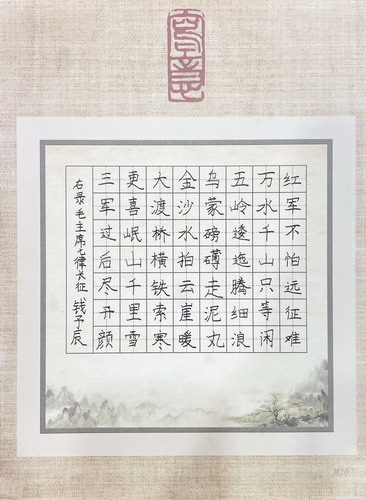 红军不怕远征难
万水千山只等闲
五岭逶迤腾细浪
乌蒙磅礴走泥丸
金沙水拍云崖暖
大渡桥横铁索寒
更喜岷山千里雪
三军过后尽开颜
右录毛主席七律长征 钱予辰
M207